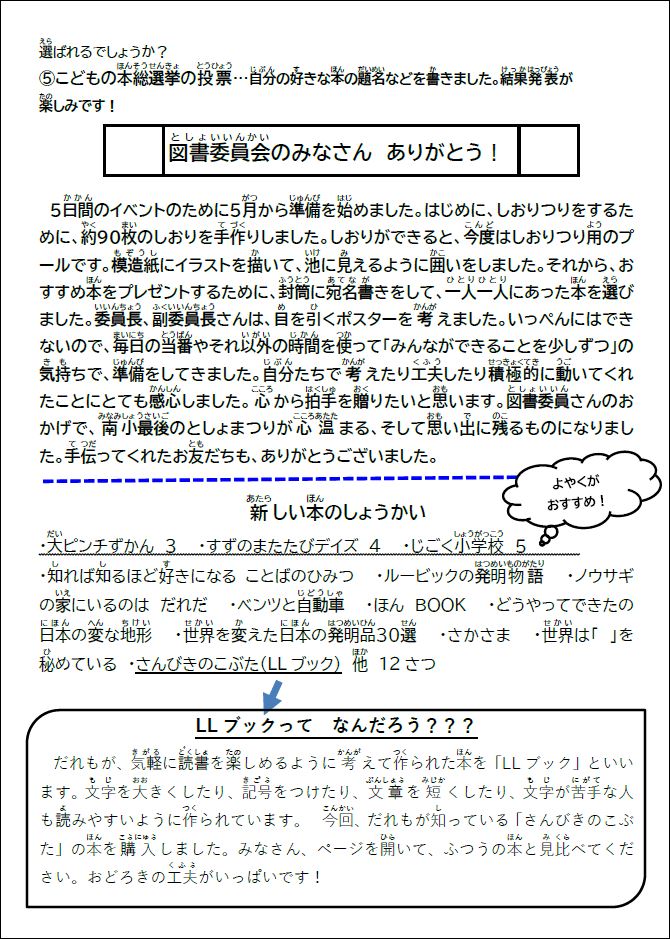 選ばれるでしょうか？
⑤こどもの本総選挙の投票…自分の好きな本の題名などを書きました。結果発表が
楽しみです！
図書委員会のみなさん ありがとう！
5日間のイベントのために5月から準備を始めました。はじめに、しおりつりをするた
めに、約90枚のしおりを手作りしました。しおりができると、今度はしおりつり用のプ
ールです。模造紙にイラストを描いて、池に見えるように囲いをしました。それから、お
すすめ本をプレゼントするために、封筒に宛名書きをして、一人一人にあった本を選び
ました。委員長、副委員長さんは、目を引くポスターを考えました。いっぺんにはでき
ないので、毎日の当番やそれ以外の時間を使って「みんなができることを少しずつ」の
気持ちで、準備をしてきました。自分たちで考えたり工夫したり積極的に動いてくれ
たことにとても感心しました。心から拍手を贈りたいと思います。図書委員さんのお
かげで、南小最後のとしょまつりが心温まる、そして思い出に残るものになりまし
た。手伝ってくれたお友だちも、ありがとうございました。
よやくが
おすすめ！
新しい本のしょうかい
・大ピンチずかん 3 ・すずのまたたびデイズ 4 ・じごく小学校 5
・知れば知るほど好きになる ことばのひみつ ・ルービックの発明物語 ・ノウサギ
の家にいるのは だれだ ・ベンツと自動車 ・ほん BOOK ・どうやってできたの
日本の変な地形 ・世界を変えた日本の発明品30選 ・さかさま ・世界は「 」を
秘めている ・さんびきのこぶた（LLブック） 他 12さつ
LLブックって なんだろう？？？
だれもが、気軽に読書を楽しめるように考えて作られた本を「LLブック」といい
ます。文字を大きくしたり、記号をつけたり、文章を短くしたり、文字が苦手な人
も読みやすいように作られています。 今回、だれもが知っている「さんびきのこぶ
た」の本を購入しました。みなさん、ページを開いて、ふつうの本と見比べてくだ
さい。おどろきの工夫がいっぱいです！